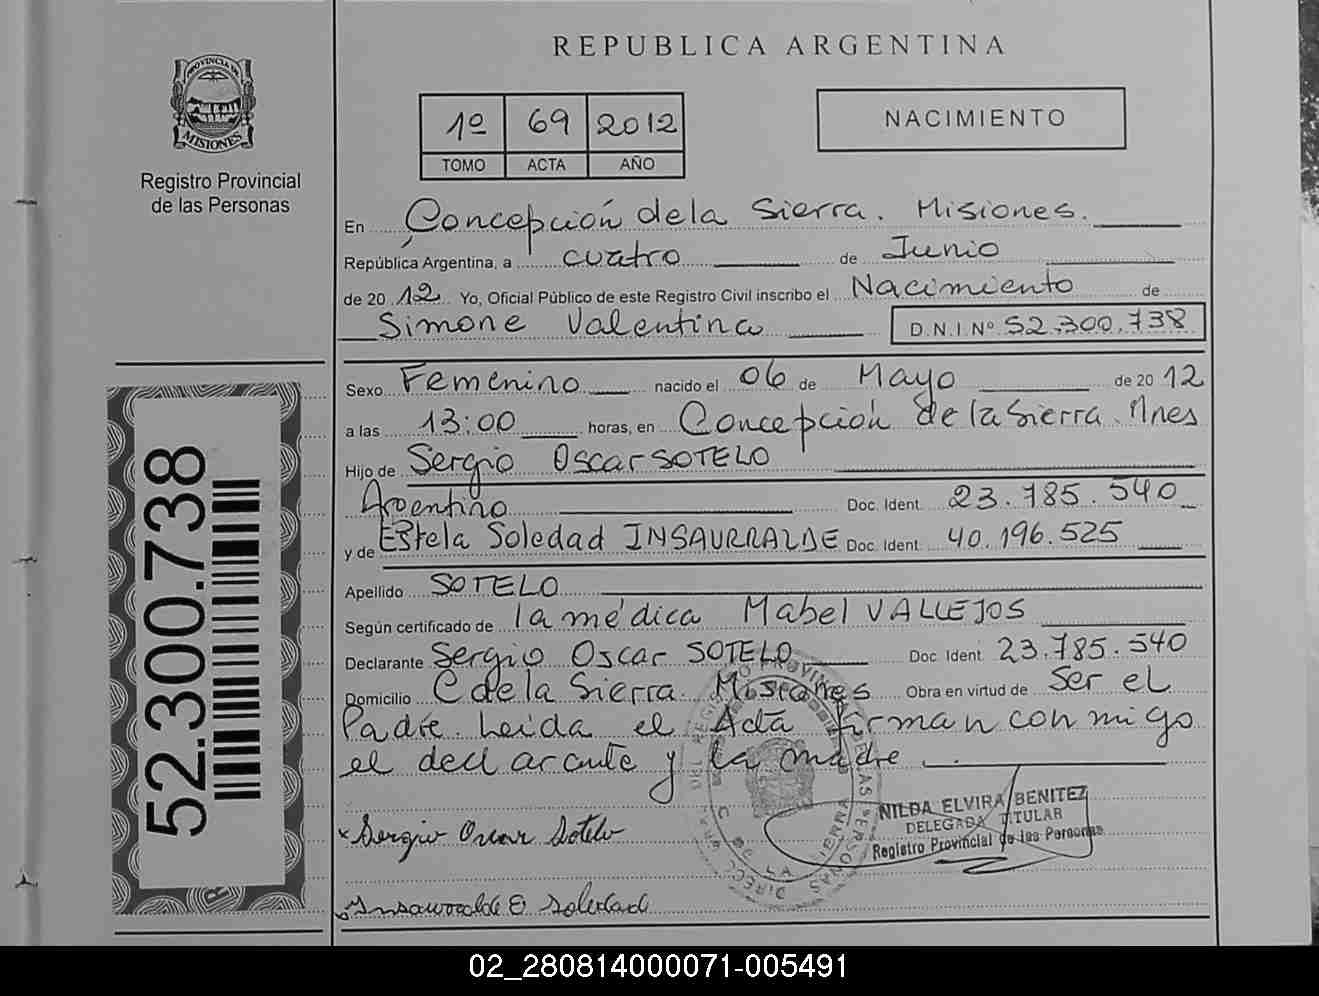 REPUBLICA ARGENTINA
PROVINCIA DE
MISIONES
Registro Provincial
de las Personas
1º 69 2012
TOMO ACTA AÑO
NACIMIENTO
En Concepción de la Sierra. Misiones.
República Argentina, a cuatro de Junio
de 2012 Yo, Oficial Público de este Registro Civil inscribo el Nacimiento de
Simone Valentina D.N.I.Nº 52.300.738
Sexo Femenino nacido el 06 de Mayo de 2012
a las 13:00 horas, en Concepción de la Sierra. Mnes
Hijo de Sergio Oscar SOTELO
Argentino Doc. Ident. 23.785.540
y de Estela Soledad INSAURRALDE Doc. Ident. 40.196.525
Apellido SOTELO
Según certificado de la médica Mabel VALLEJOS
Declarante Sergio Oscar SOTELO Doc. Ident. 23.785.540
Domicilio C de la Sierra. Misiones Obra en virtud de Ser el
Padre. Leida el Acta firman conmigo
el declarante y la madre.
52.300.738
NILDA ELVIRA BENITEZ
DELEGADA TITULAR
Registro Provincial de las Personas
x Sergio Oscar Sotelo
x Insaurralde E Soledad
02_280814000071-005491